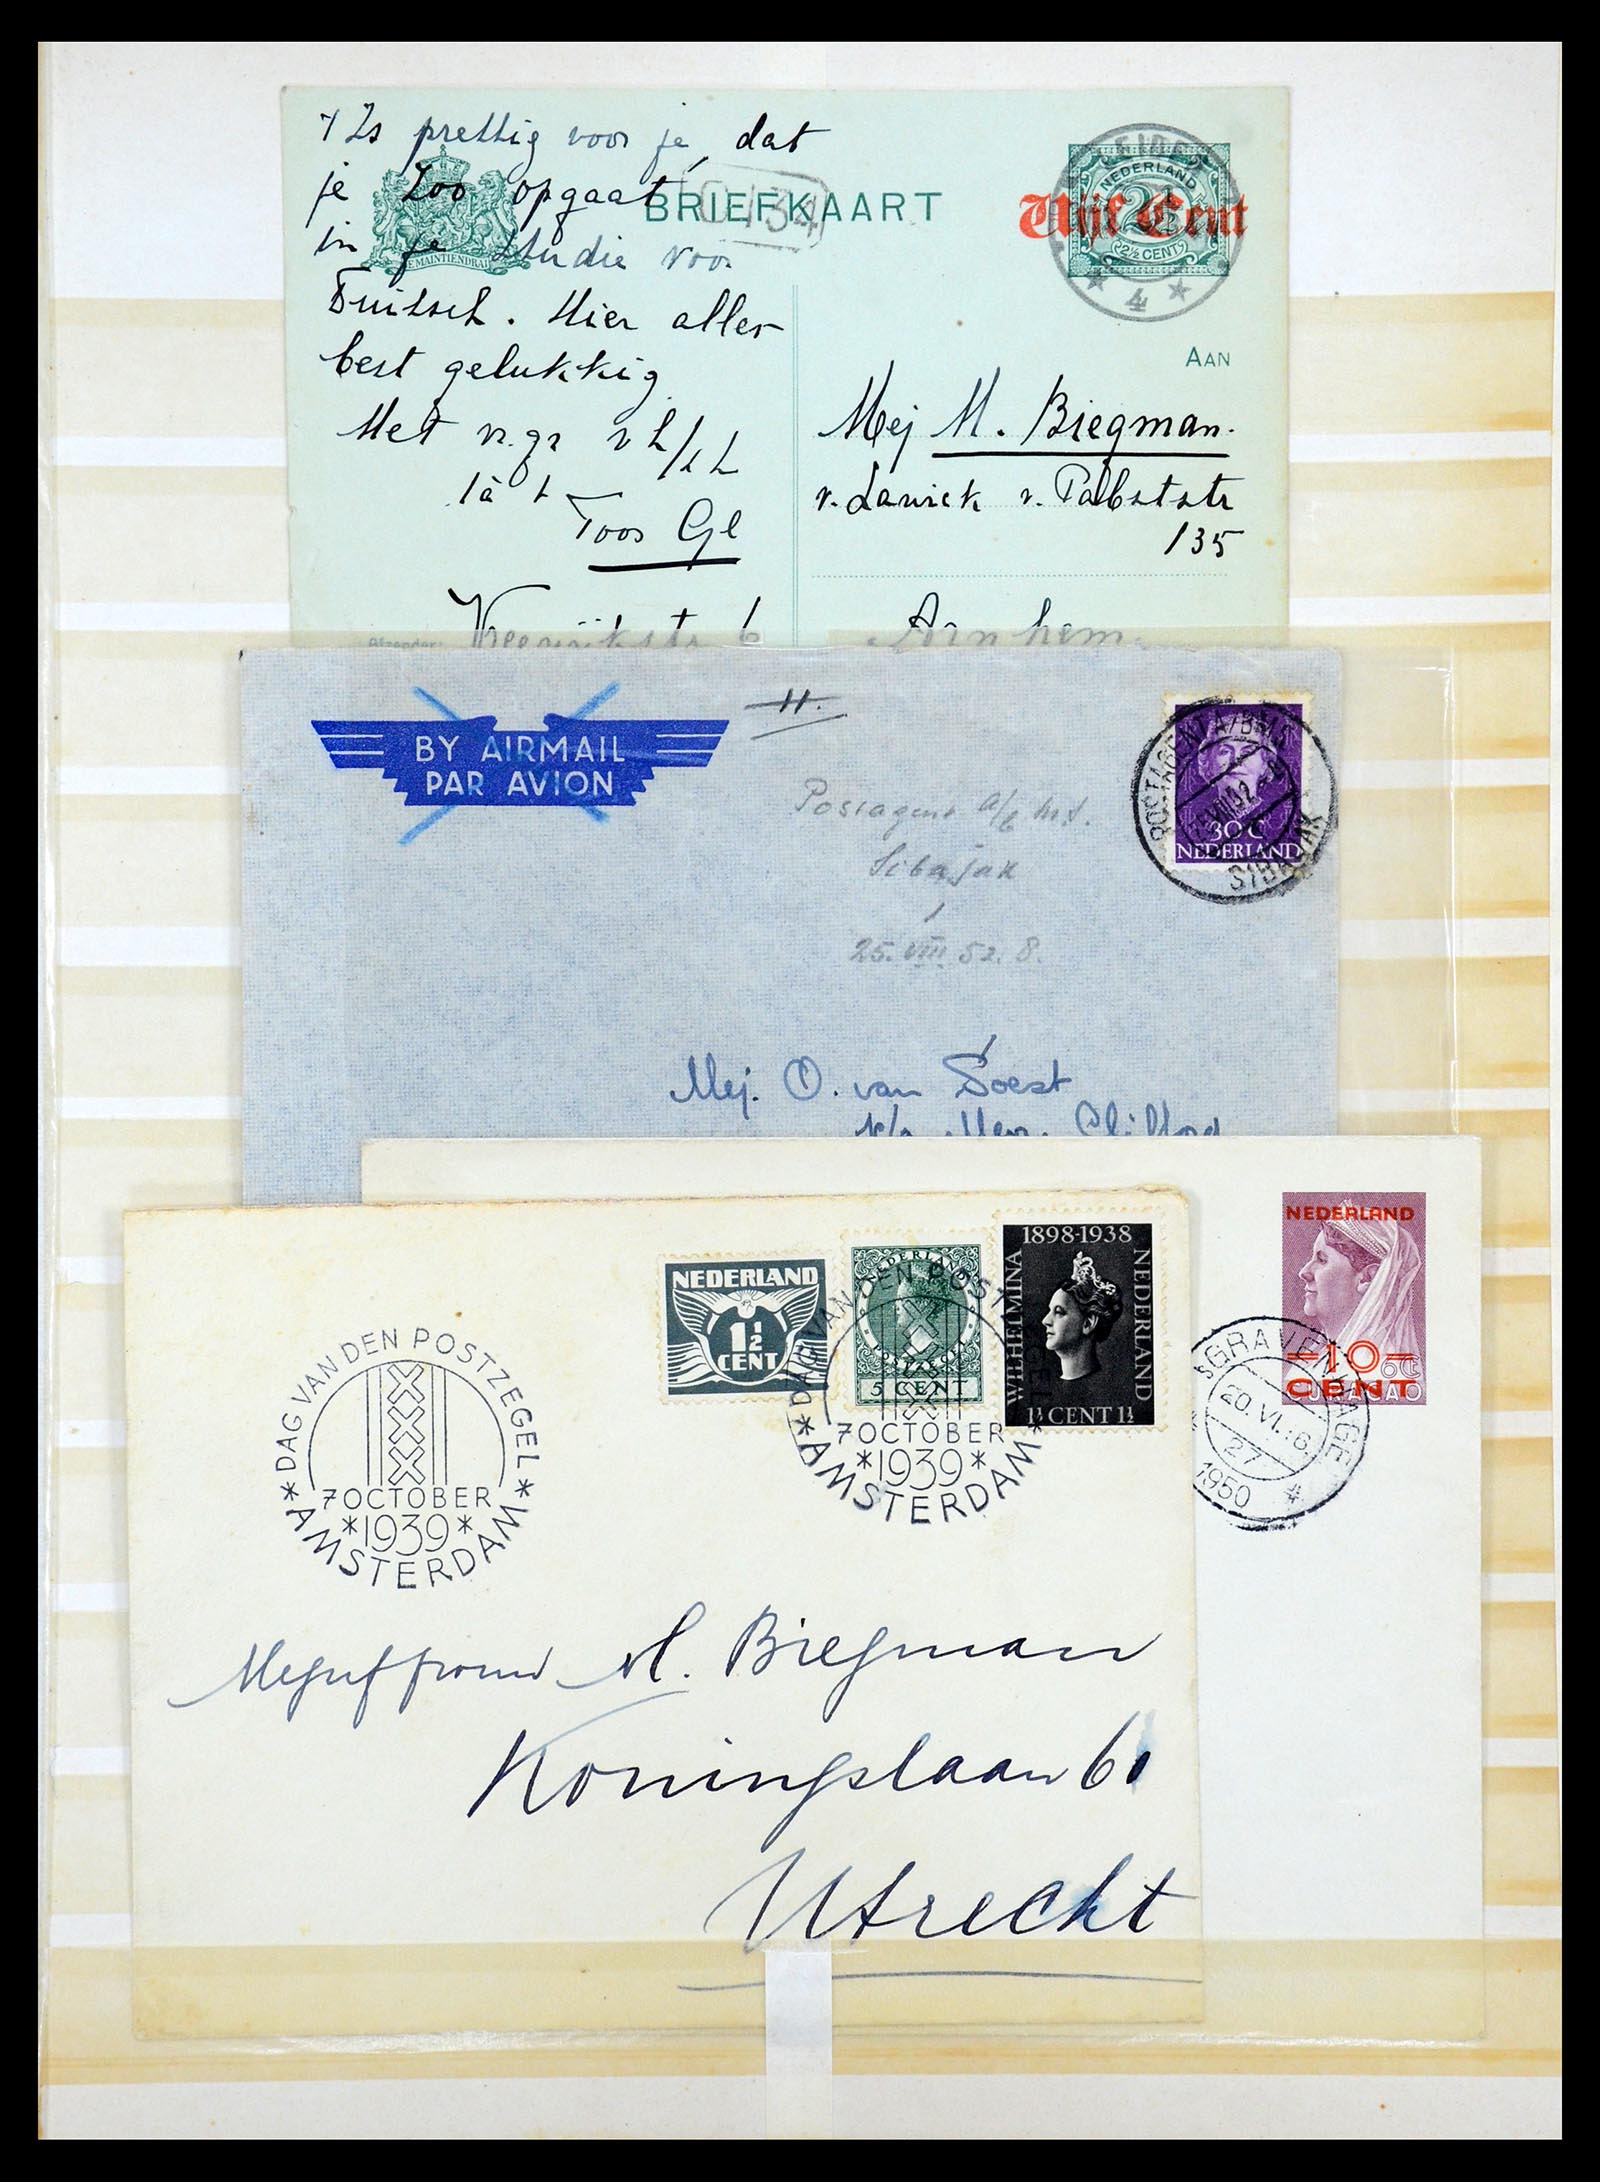 't Is prettig voor je, dat
je zoo opgaat
in je studie voor
Duitsch. Hier alles
best gelukkig
Met vr. gr v h/
Toos Ge
JE MAINTIENDRAI
BRIEFKAART
NEDERLAND
2½
2½ CENT
Vijf Cent
4
AAN
Mej M. Biegman.
v. Lawick v. Pabststr
135
Arnhem
Afzender:
6
BY AIRMAIL
PAR AVION
Postagent a/b M.S.
Sibajak
25. VIII 52. 8.
POSTAGENT A/B M.S.
SIBAJAK
30 C
NEDERLAND
Mej. O. van Soest
p/a Mevr. Clifford
NEDERLAND
-10-
CENT
CURAÇAO
'sGRAVENHAGE
20.VI.:6.
27
1950
NEDERLAND
1½
CENT
NEDERLAND
POSTZEGEL
5 CENT
1898-1938
WILHELMINA
NEDERLAND
1½ CENT 1½
*DAG VAN DEN POSTZEGEL*
7 OCTOBER
*1939*
AMSTERDAM
*DAG VAN DEN POSTZEGEL*
7 OCTOBER
*1939*
AMSTERDAM
Mejuffrouw M. Biegman
Koningslaan 61
Utrecht